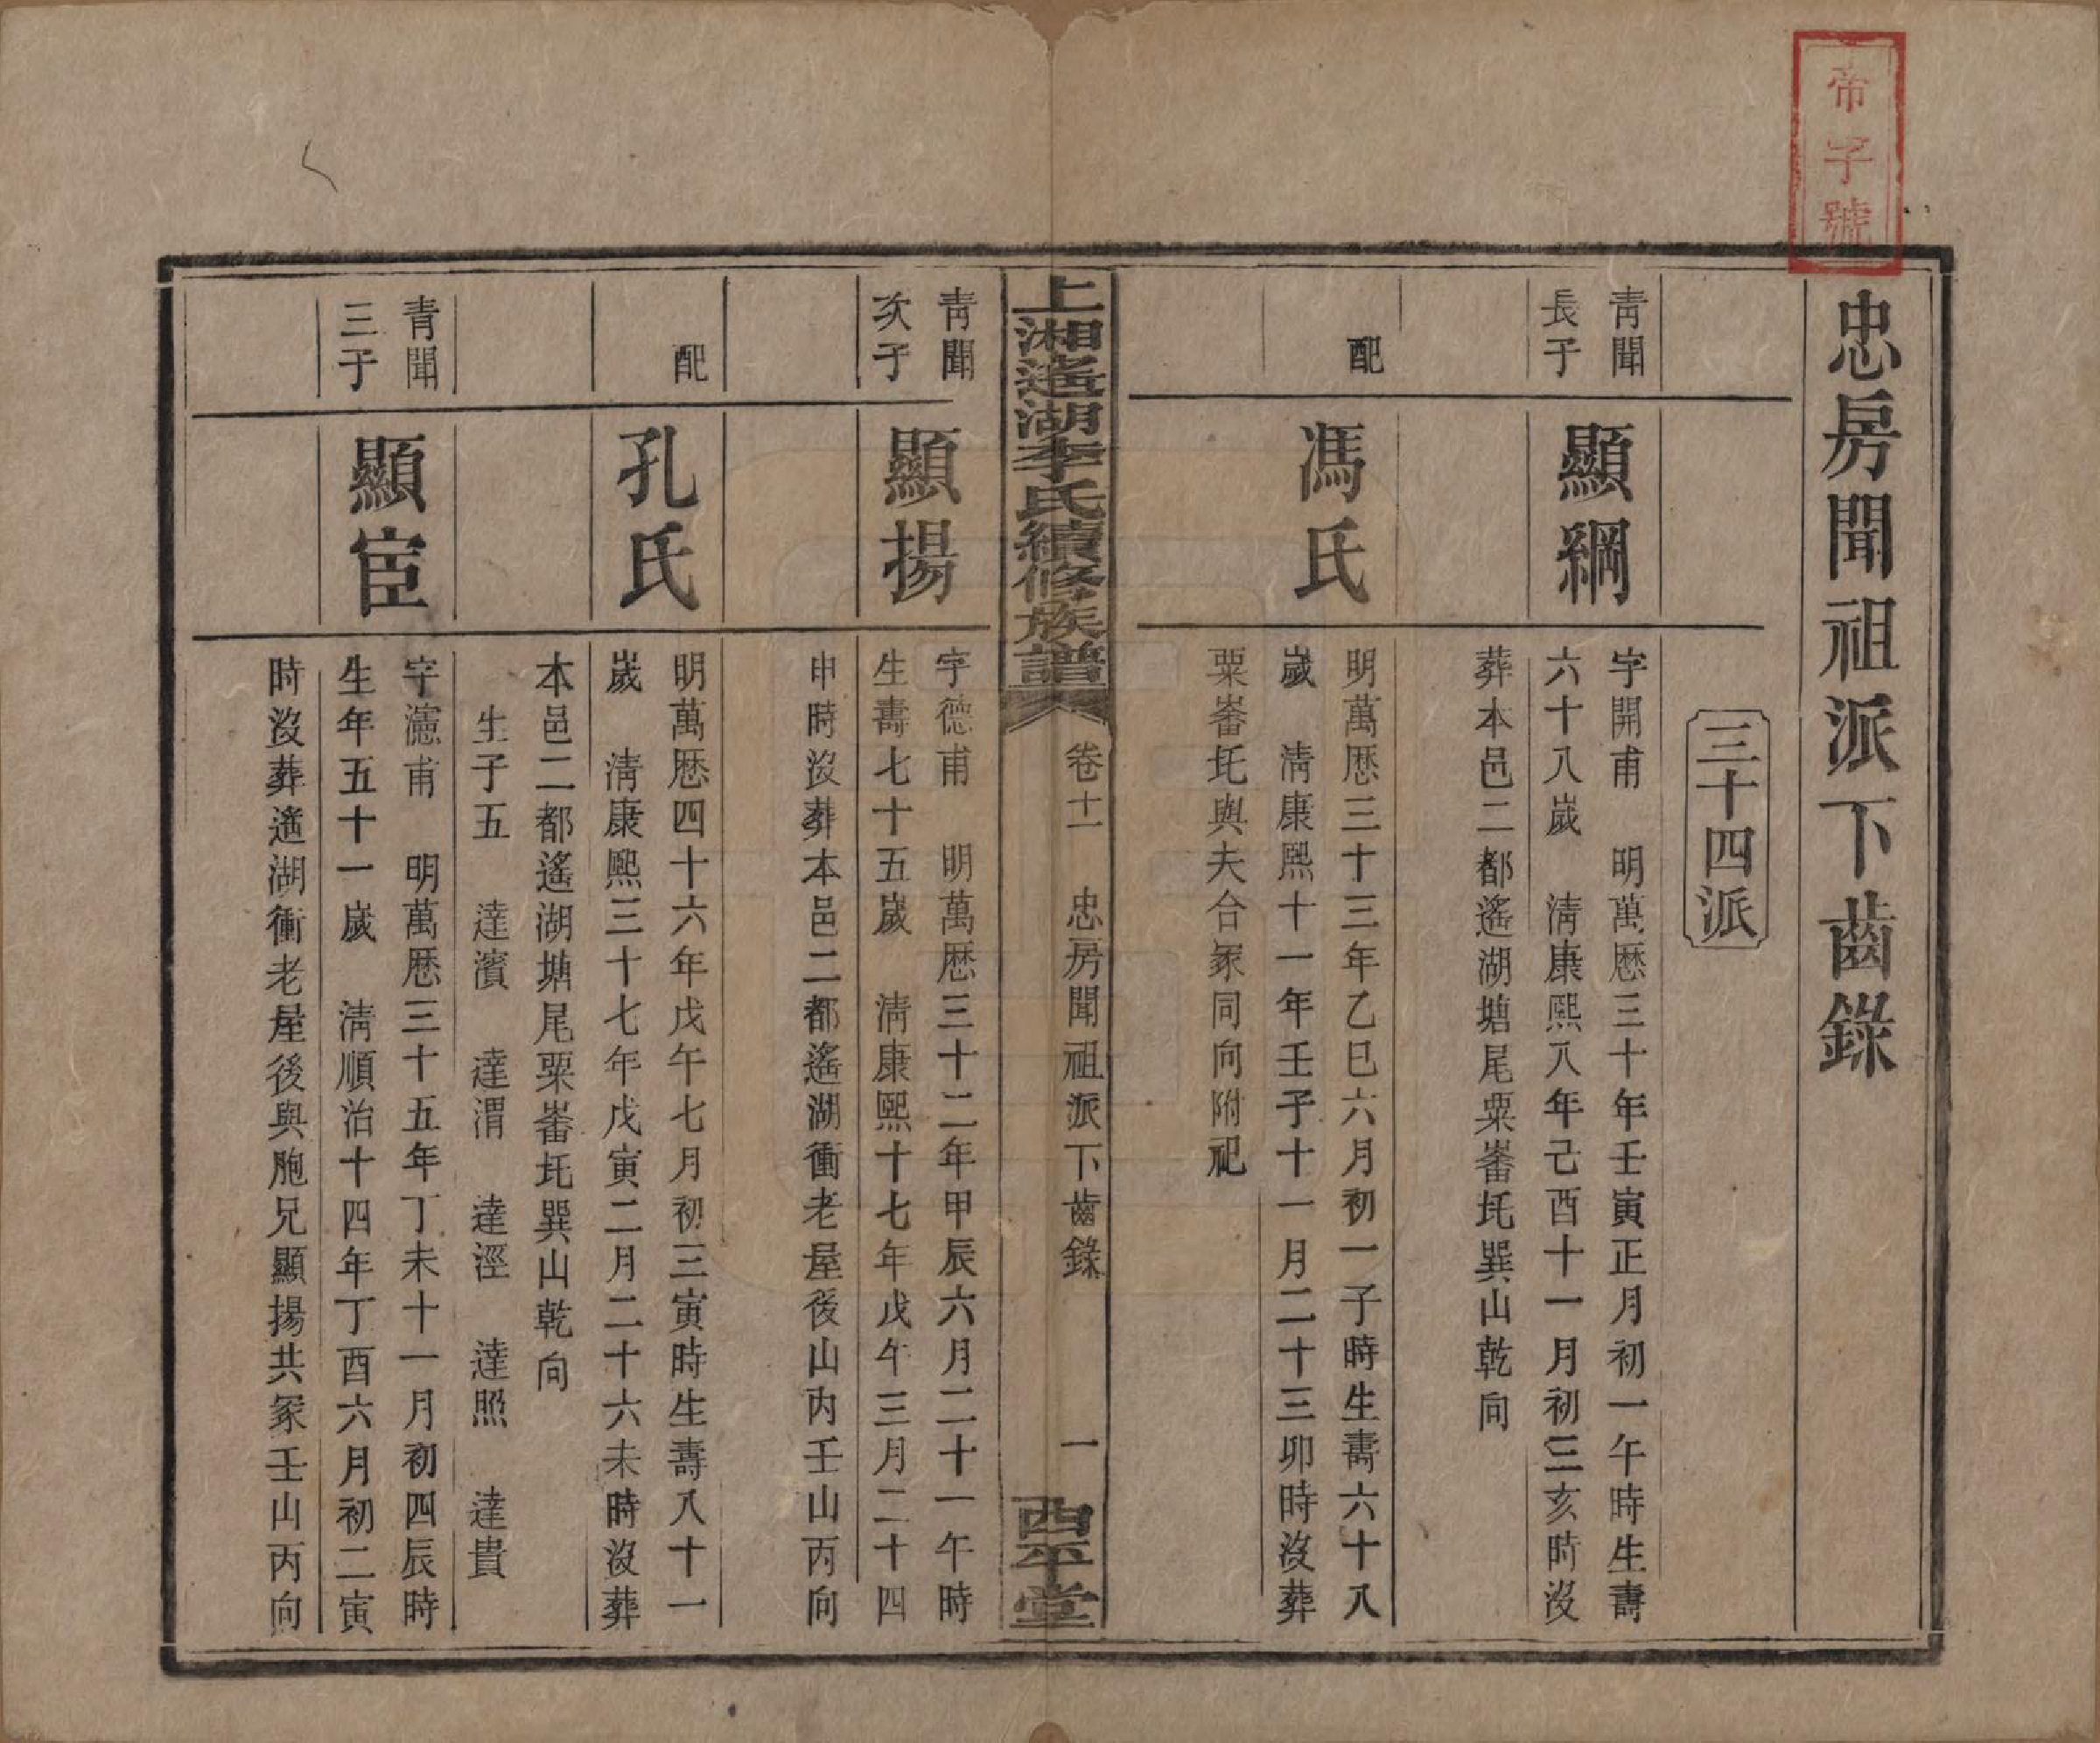 帝子號
忠房聞祖派下齒錄
三十四派
青聞
長子
顯綱
字開甫　明萬歷三十年壬寅正月初一午時生壽
六十八歲　淸康熙八年己酉十一月初三亥時沒
葬本邑二都遙湖塘尾粟崙圫巽山乾向
配
馮氏
明萬歷三十三年乙巳六月初一子時生壽六十八
歲　淸康熙十一年壬子十一月二十三卯時沒葬
粟崙圫與夫合冢同向附祀
上湘遙湖李氏續修族譜
卷十一　忠房聞祖派下齒錄　一
西平堂
青聞
次子
顯揚
字德甫　明萬歷三十二年甲辰六月二十一午時
生壽七十五歲　淸康熙十七年戊午三月二十四
申時沒葬本邑二都遙湖衝老屋後山內壬山丙向
配
孔氏
明萬歷四十六年戊午七月初三寅時生壽八十一
歲　淸康熙三十七年戊寅二月二十六未時沒葬
本邑二都遙湖塘尾粟崙圫巽山乾向
生子五　達濱　達渭　達涇　達照　達貴
青聞
三子
顯宦
字濾甫　明萬歷三十五年丁未十一月初四辰時
生年五十一歲　淸順治十四年丁酉六月初二寅
時沒葬遙湖衝老屋後與胞兄顯揚共冢壬山丙向